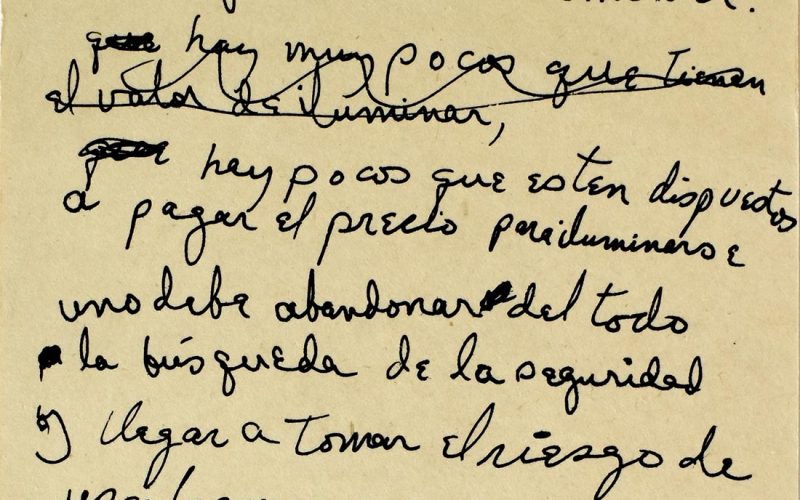 que hay muy pocos que tienen
el valor de iluminar,
que hay pocos que esten dispuestos
a pagar el precio parailuminarse
uno debe abandonar del todo
la búsqueda de la seguridad
y llegar a tomar el riesgo de